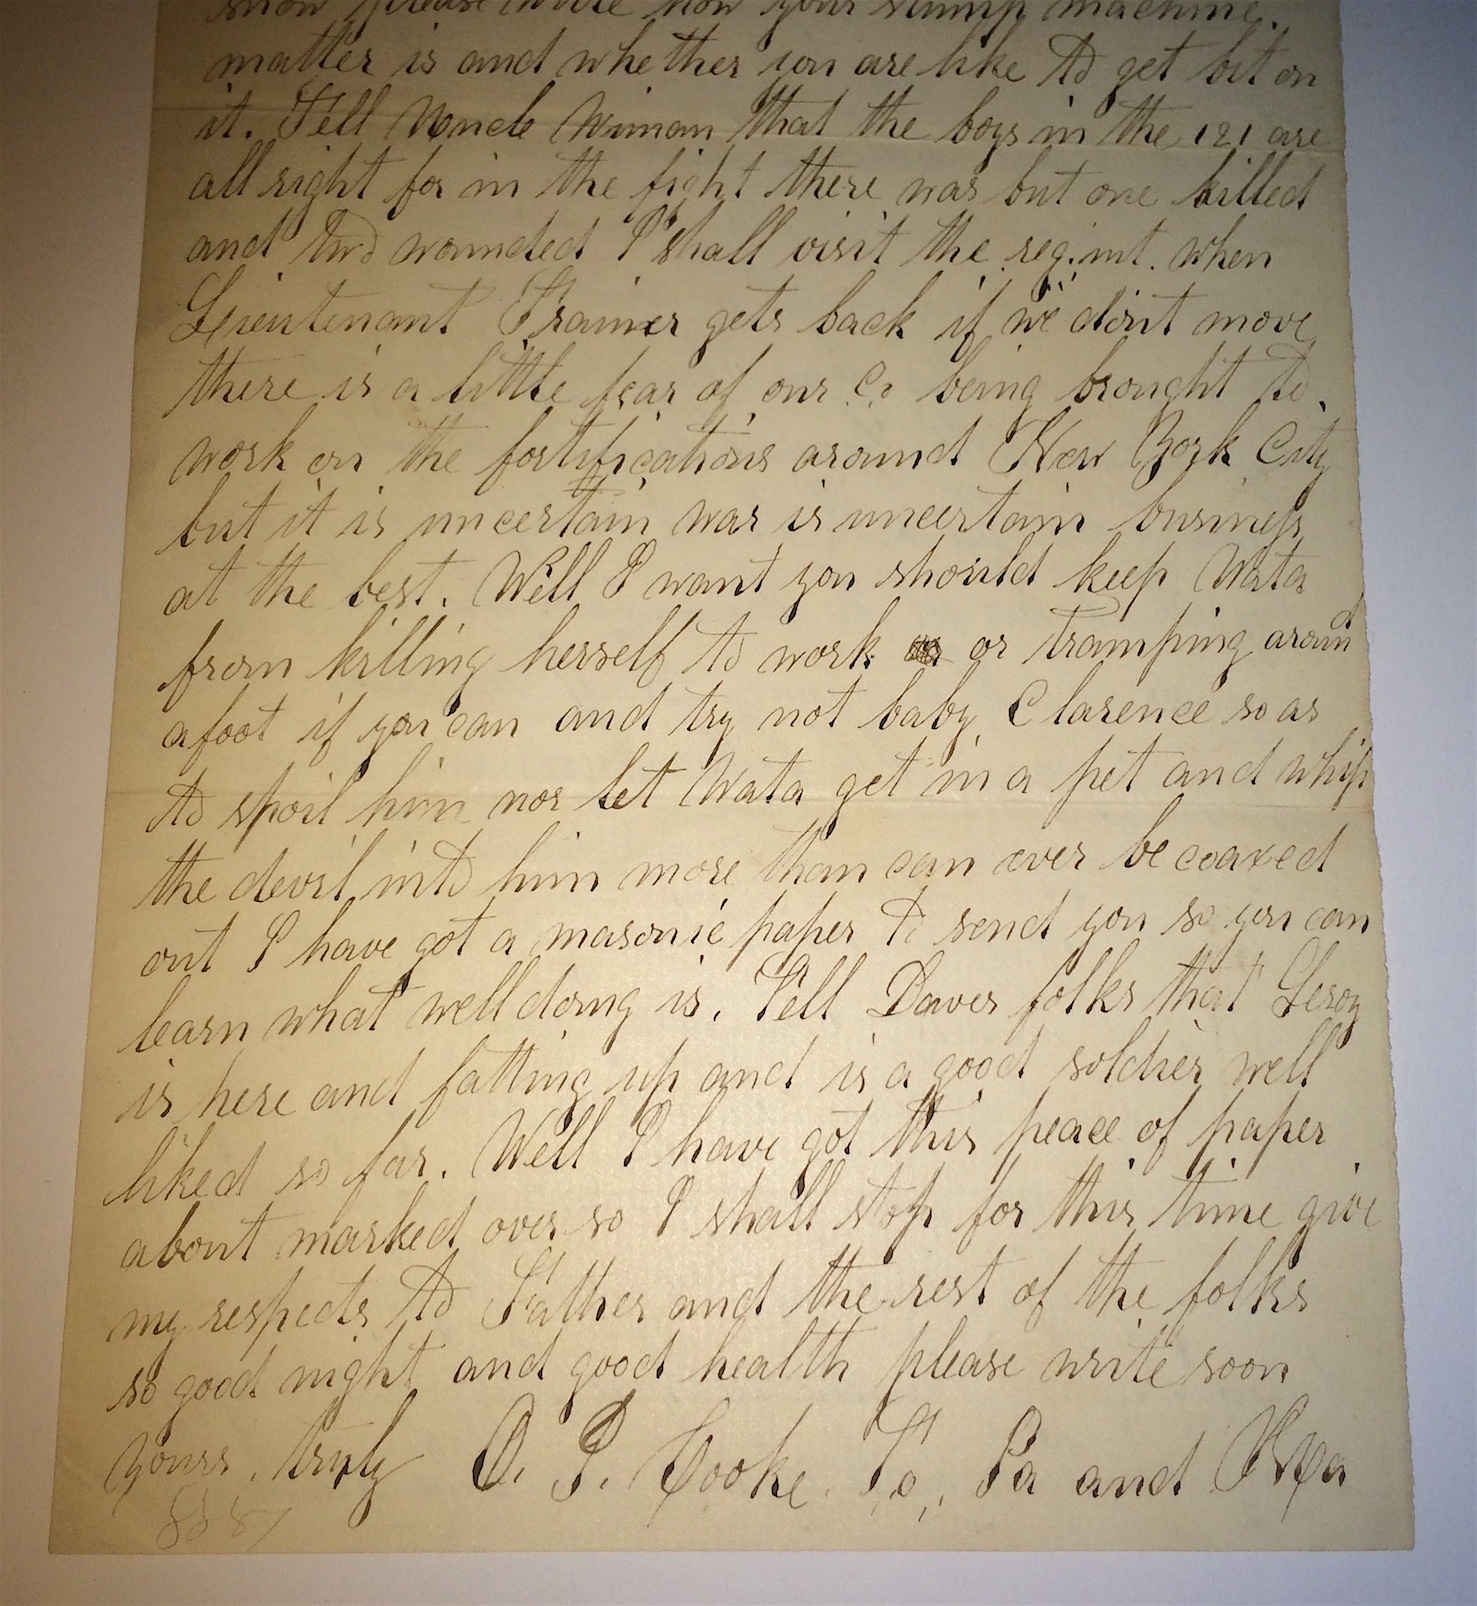 snow please write how your stump machine.
matter is and whether you are like to get bit on
it. Tell Uncle Wiman that the boys in the 121 are
all right for in the fight there was but one killed
and two wounded I shall visit the regimt. when
Lieutenant Trainer gets back if we dont move
there is a little fear of our Co being brought to
work on the fortifications around New York City
but it is uncertain war is uncertain business
at the best. Well I want you should keep Wata
from killing herself to work or tramping around
afoot if you can and try not baby Clarence so as
to spoil him nor let Wata get in a pet and whip
the devil into him more than can ever be coaxed
out I have got a masonic paper to send you so you can
learn what well doing is. Tell Daves folks that Leroy
is here and fatting up and is a good soldier well
liked so far. Well I have got this peace of paper
about marked over so I shall stop for this time give
my respects to Father and the rest of the folks
so good night and good health please write soon
Yours, truly O. P. Cooke. To, Pa and